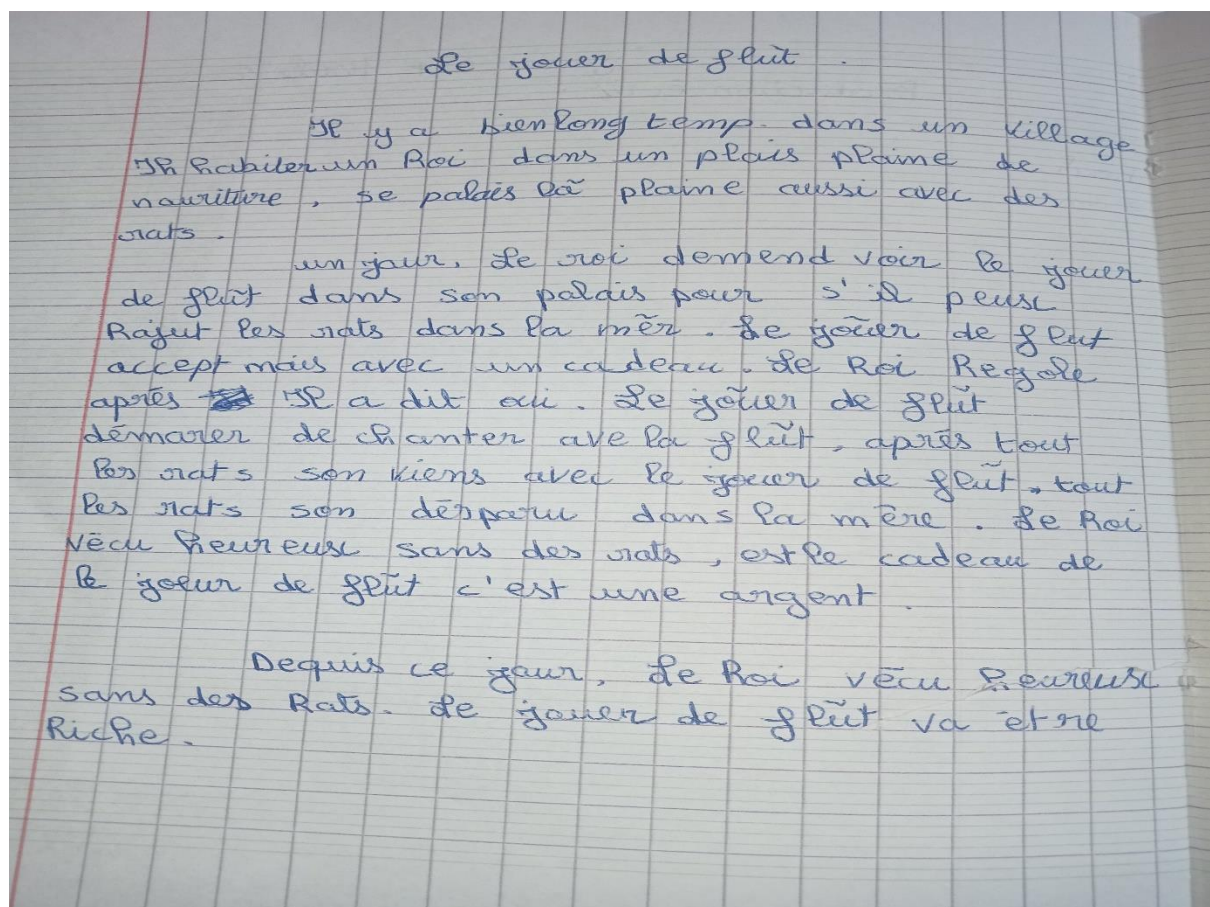 Le jouer de flut.
Il y a bien long temp. dans un village
Ih habiter un Roi dans un plais plaine de
nouriture, se palais là plaine aussi avec des
rats.
un jour, Le roi demend voir le jouer
de flût dans son palais pour s'il peuse
Rajut les rats dans la mèr. Le joûer de flut
accept mais avec un cadeau. Le Roi Regole
après Il a dit oui. Le joûer de flût
démarer de chanter ave la flût, après tout
les rats son viens avec le jouer de flût, tout
les rats son désparu dans la mère. Le Roi
vécu heureuse sans des rats, est le cadeau de
le joeur de flût c'est une argent.
Dequis ce jour, Le Roi vécu heureuse
sans des Rats. Le jouer de flût va etre
Riche.